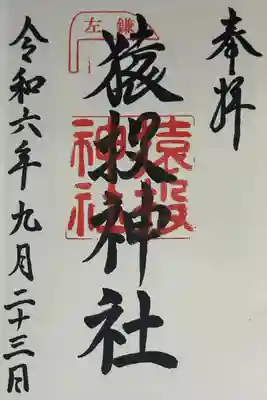 奉拝
左鎌
猿投神社
猿投
神社
令和六年九月二十三日